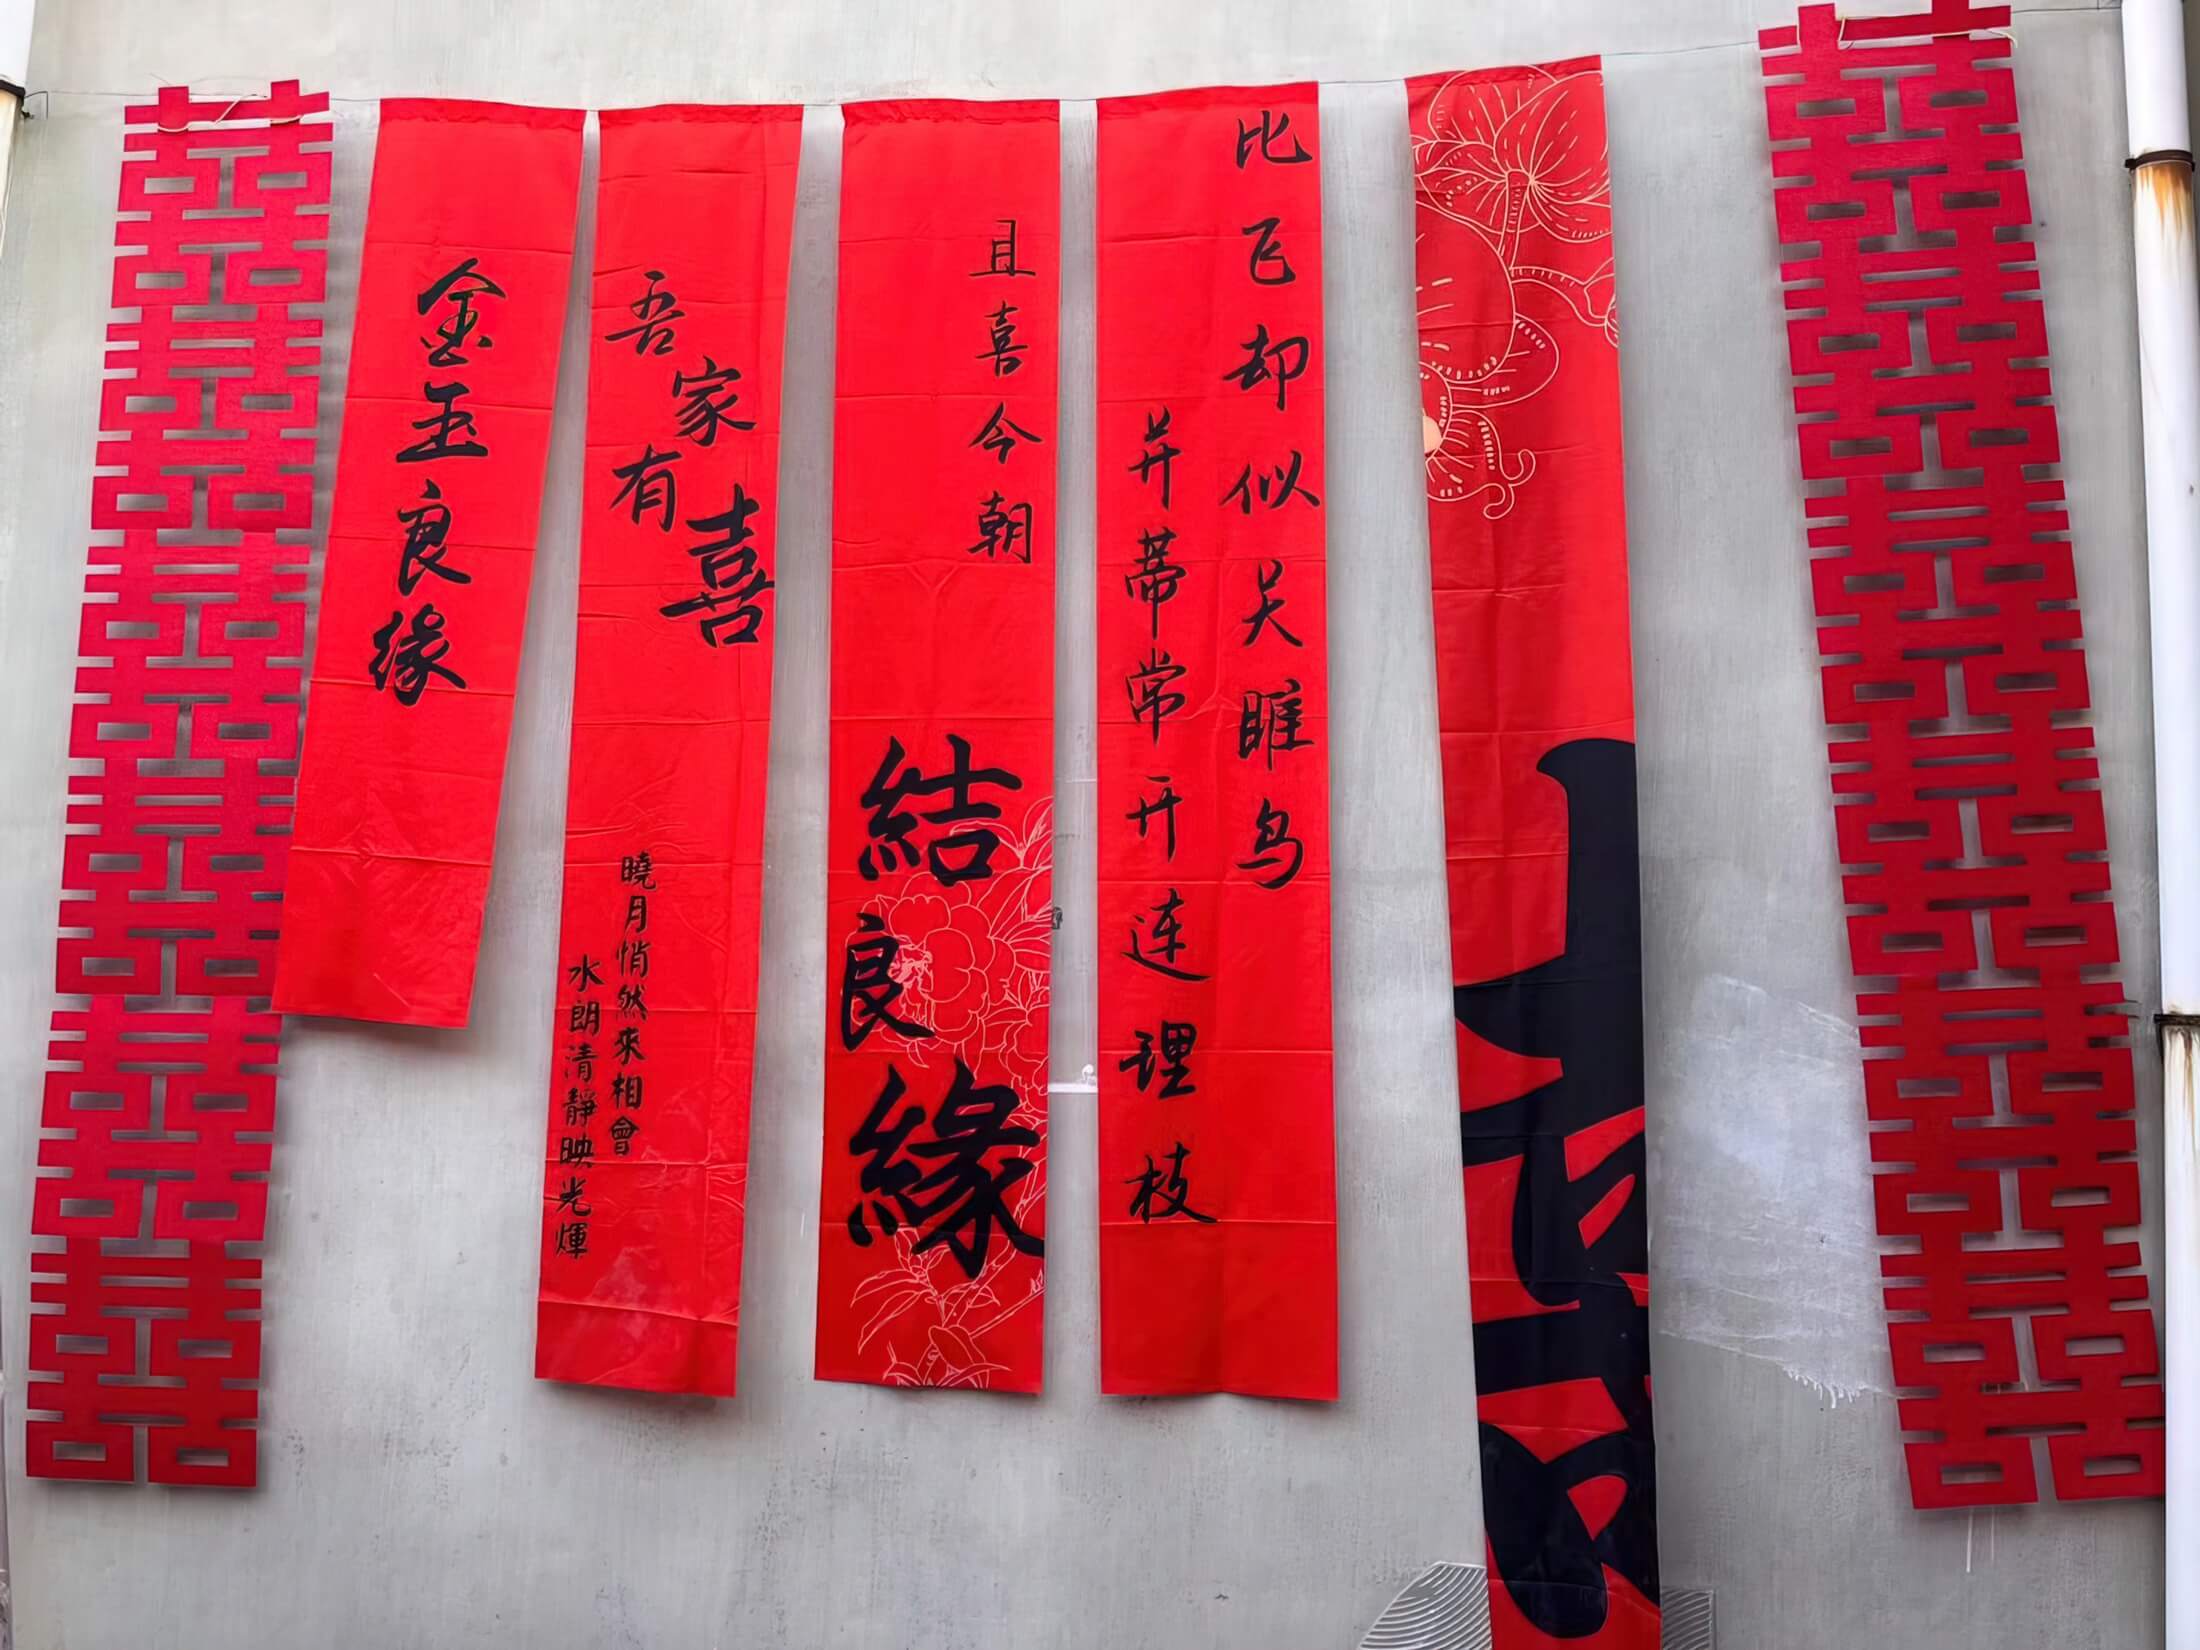 囍
囍
囍
囍
囍
囍
金玉良缘
吾家有喜
曉月悄然來相會
水朗清靜映光輝
且喜今朝
結良緣
比飞却似关雎鸟
并蒂常开连理枝
囍
囍
囍
囍
囍
囍